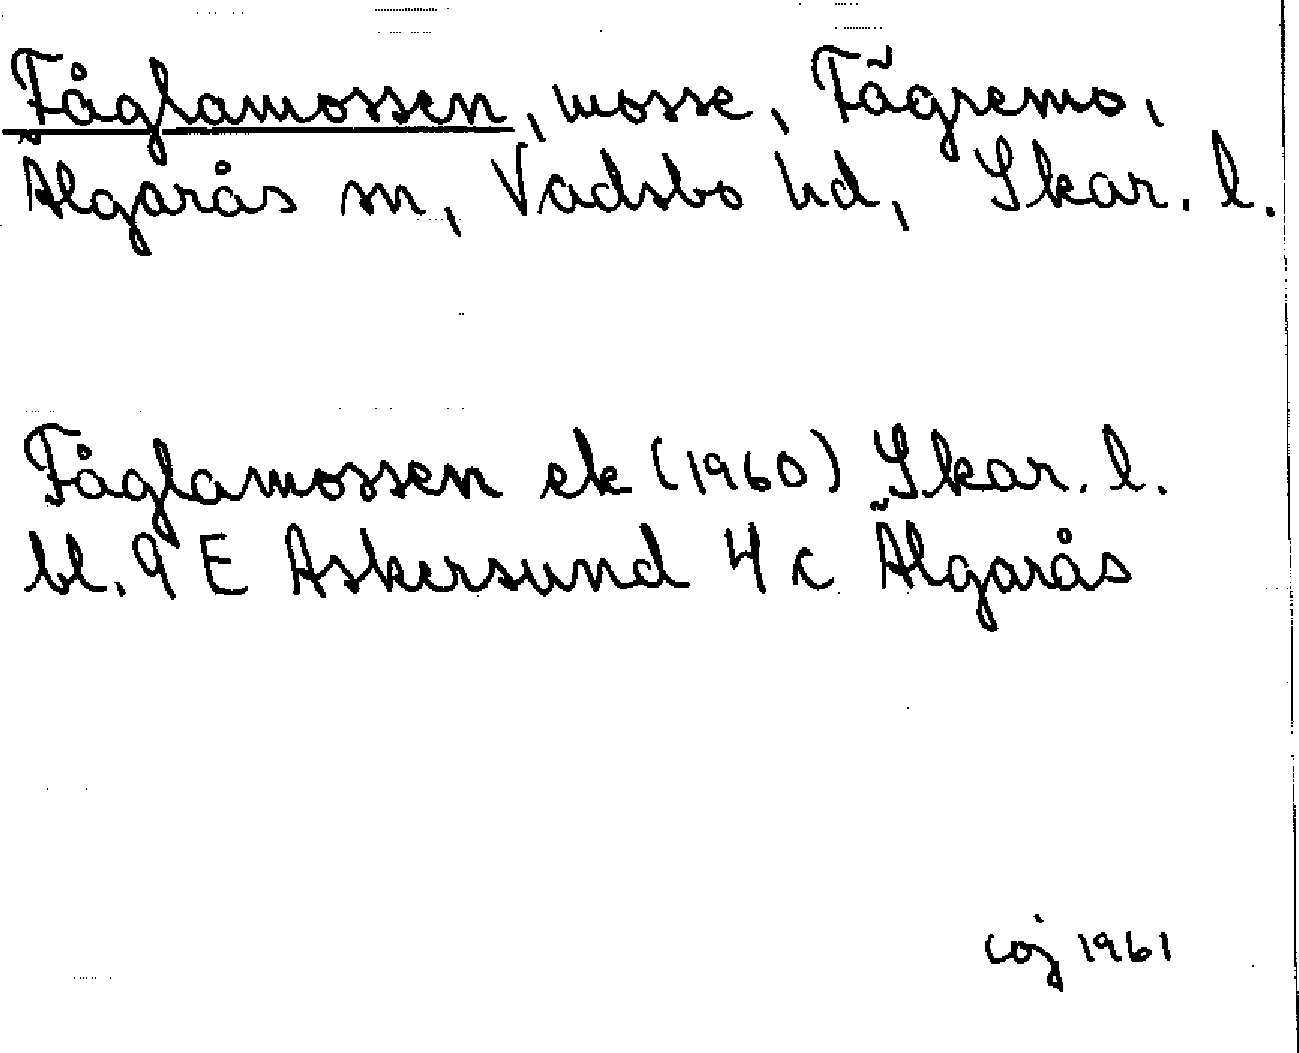 Fåglamossen, mosse, Fägremo,
Älgarås sn, Vadsbo hd, Skar. l.
Fåglamossen ek (1960) Skar. l.
bl. 9 E Askersund 4 c Älgarås
coj 1961